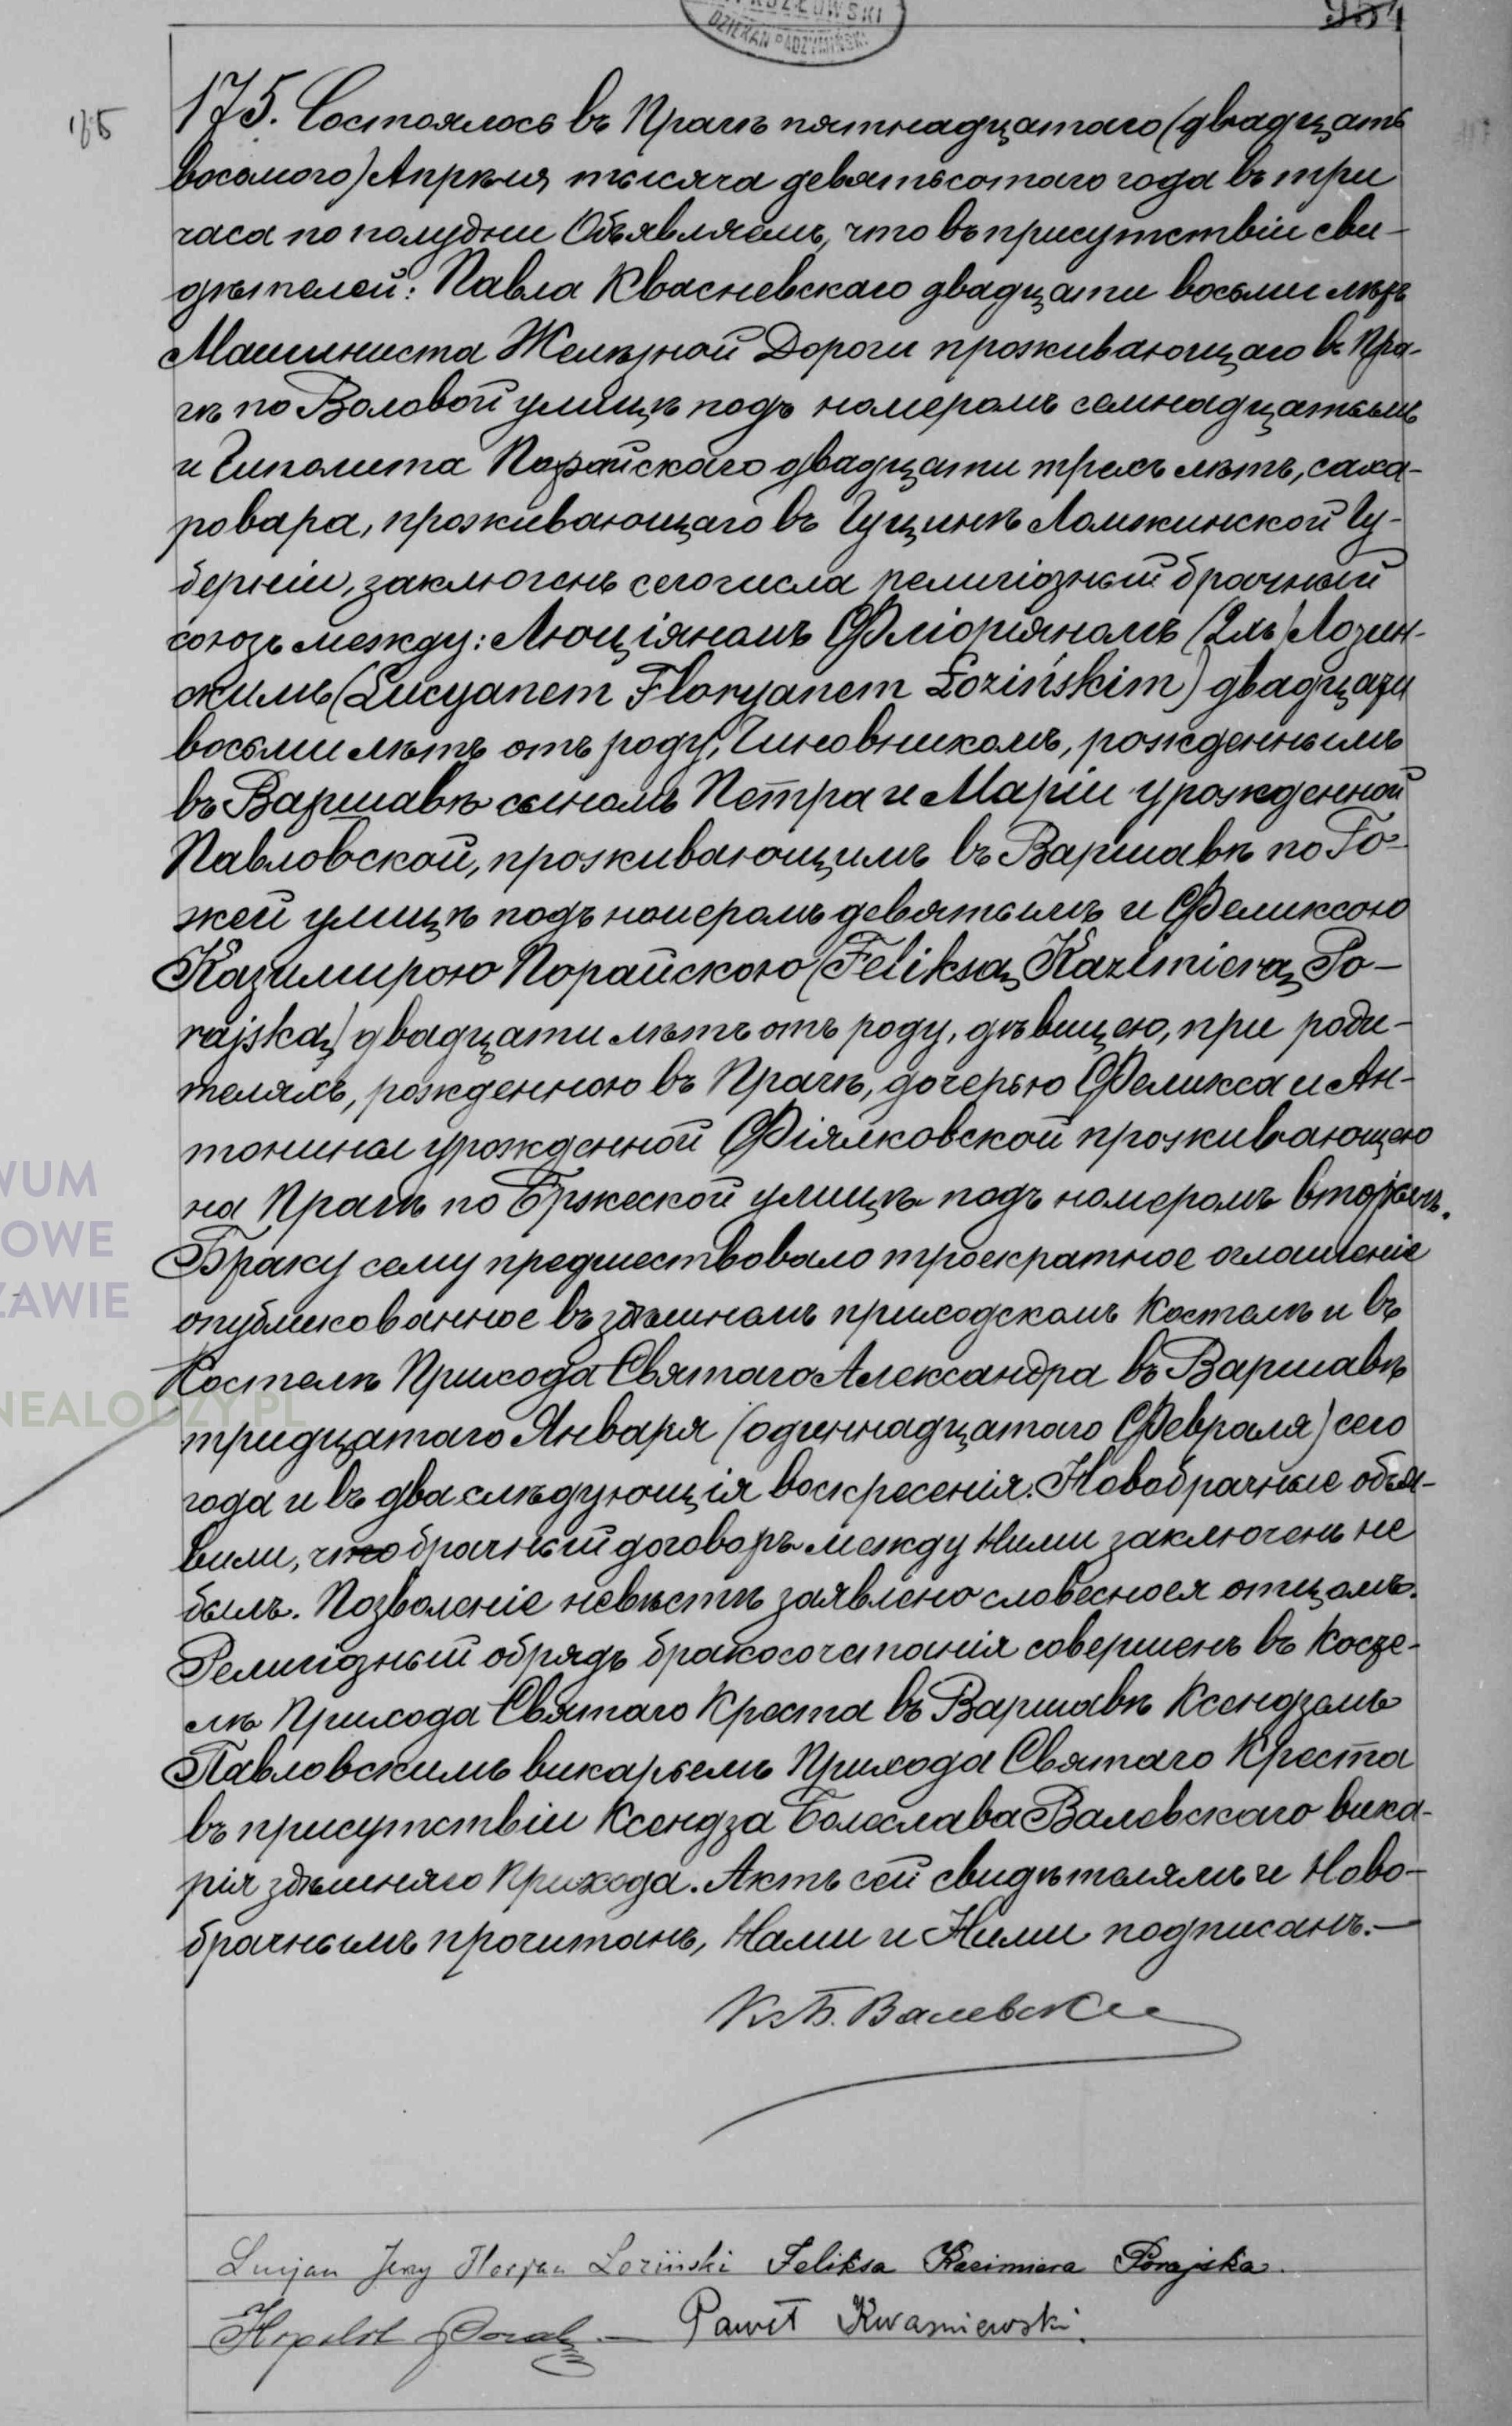 KOZŁOWSKI
DZIEKAN RADZYMIŃSKI
954
185
175. Состоялось въ Прагѣ пятнадцатаго (двадцать
восьмого) Апрѣля тысяча девятьсотаго года въ три
часа по полудни Объявляемъ, что въ присутствіи сви-
дѣтелей: Павла Квасневскаго двадцати восьми лѣтъ
Машиниста Желѣзной Дороги проживающаго въ Пра-
гѣ по Воловой улицѣ подъ номеромъ семнадцатымъ
и Гиполита Порайскаго двадцати трехъ лѣтъ, саха-
ровара, проживающаго въ Ломжинской Гу-
берніи, заключенъ сего числа религіозный брачный
союзъ между: Люціяномъ Флоріяномъ Лозин-
скимъ (Lucyanem Floryanem Łozińskim) двадцати
восьми лѣтъ отъ роду, Чиновникомъ, рожденнымъ
въ Варшавѣ сыномъ Петра и Маріи урожденной
Павловской, проживающимъ въ Варшавѣ по Го-
жей улицѣ подъ номеромъ девятымъ и Феликсою
Казимирою Порайскою (Feliksą Kazimierą Po-
rajską) двадцати лѣтъ отъ роду, дѣвицею, при роди-
теляхъ, рожденною въ Прагѣ, дочерью Феликса и Ан-
тонины урожденной Фіялковской проживающею
на Прагѣ по Бржеской улицѣ подъ номеромъ вторымъ.
Браку сему предшествовало троекратное оглашеніе
опубликованное въ здѣшномъ приходскомъ Костелѣ и въ
Костелѣ Прихода Святаго Александра въ Варшавѣ
тридцатаго Января (одиннадцатаго Февраля) сего
года и въ два слѣдующія воскресенія. Новобрачные объя-
вили, что брачный договоръ между Ними заключенъ не
былъ. Позволеніе невѣстѣ заявлено словесно ея отцомъ.
Религіозный обрядъ бракосочетанія совершенъ въ Косте-
лѣ Прихода Святаго Креста въ Варшавѣ Ксендзомъ
Павловскимъ викарьемъ Прихода Святаго Креста
въ присутствіи Ксендза Болеслава Валевскаго вика-
рія здѣшняго Прихода. Актъ сей свидѣтелямъ и Ново-
брачнымъ прочитанъ, Нами и Ними подписанъ.—
Кс Б. Валевски
Lucjan Jerzy Florjan Łoziński Feliksa Kazimiera Porajska.
Hipolit Paweł Kwaśniewski.
WUM
OWE
ZAWIE
NEALODZY.PL